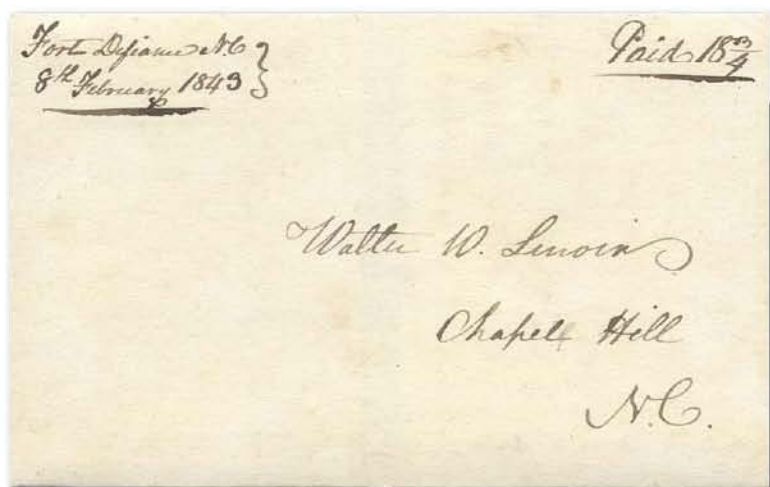 Fort Defiance N.C
8th February 1843
Paid 18 3/4
Walter W. Lenoir
Chapel Hill
N.C.